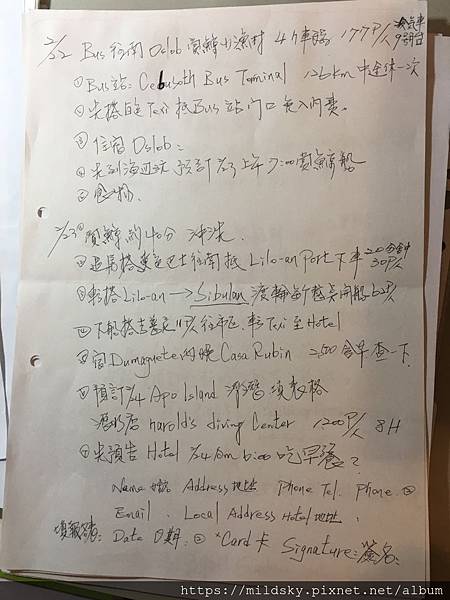 2/22 Bus 往南 Oslob 賞鯨小漁村 4小車程 177P/人 冷氣車
① Bus站: Cebu South Bus Terminal 126km 中途休一次
② 先搭 Taxi 抵 Bus 站門口 免入內費。
③ 住宿 Oslob:
④ 先到海边玩 預訂 2/23 上午 7:00 賞鯨船
⑤ 食物.
2/23 ① 賞鯨 約40分 沖洗.
② 退房搭黃色巴士往南抵 Lilo-an Port 下車 20分鐘 30P/人
③ 轉搭 Lilo-an → Sibulan 渡輪 62P/人
④ 下船搭吉普尼 11P/人 往市区, 轉 Taxi 至 Hotel
⑤ 宿 Dumaguete 的晚 Casa Rubin 2500 含早 查一下
⑥ 預訂 2/4 Apo Island 浮潛 填表格
潛水店 harold's diving Center 1200P/人 8H
⑦ 先預告 Hotel 2/24 Am 6:00 吃早餐?
Name 姓名 Address 地址 Phone Tel. Phone.
Email. Local Address Hotel 地址.
Date 日期: *Card 卡 Signature: 簽名:
https://mildsky.pixnet.net/album